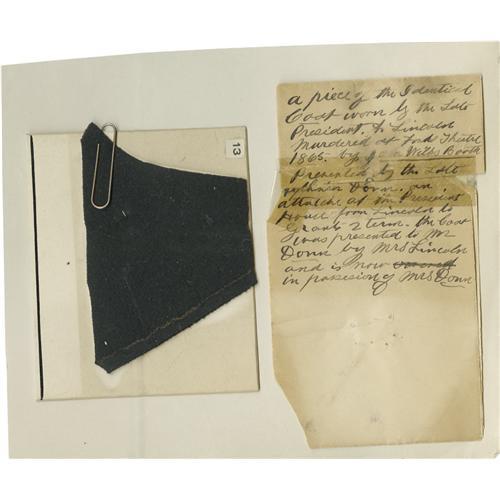 13
a piece of the Identical
Coat worn by the late
President. A Lincoln
Murdered at Ford Theatre
1865. by John Wilks Booth
Presented by the late
Donn. an
attache at the President
House from Lincoln to
Grants 2 term. the Coat
was presented to Mr
Donn by Mrs Lincoln
and is now
in possesion of Mrs Donn